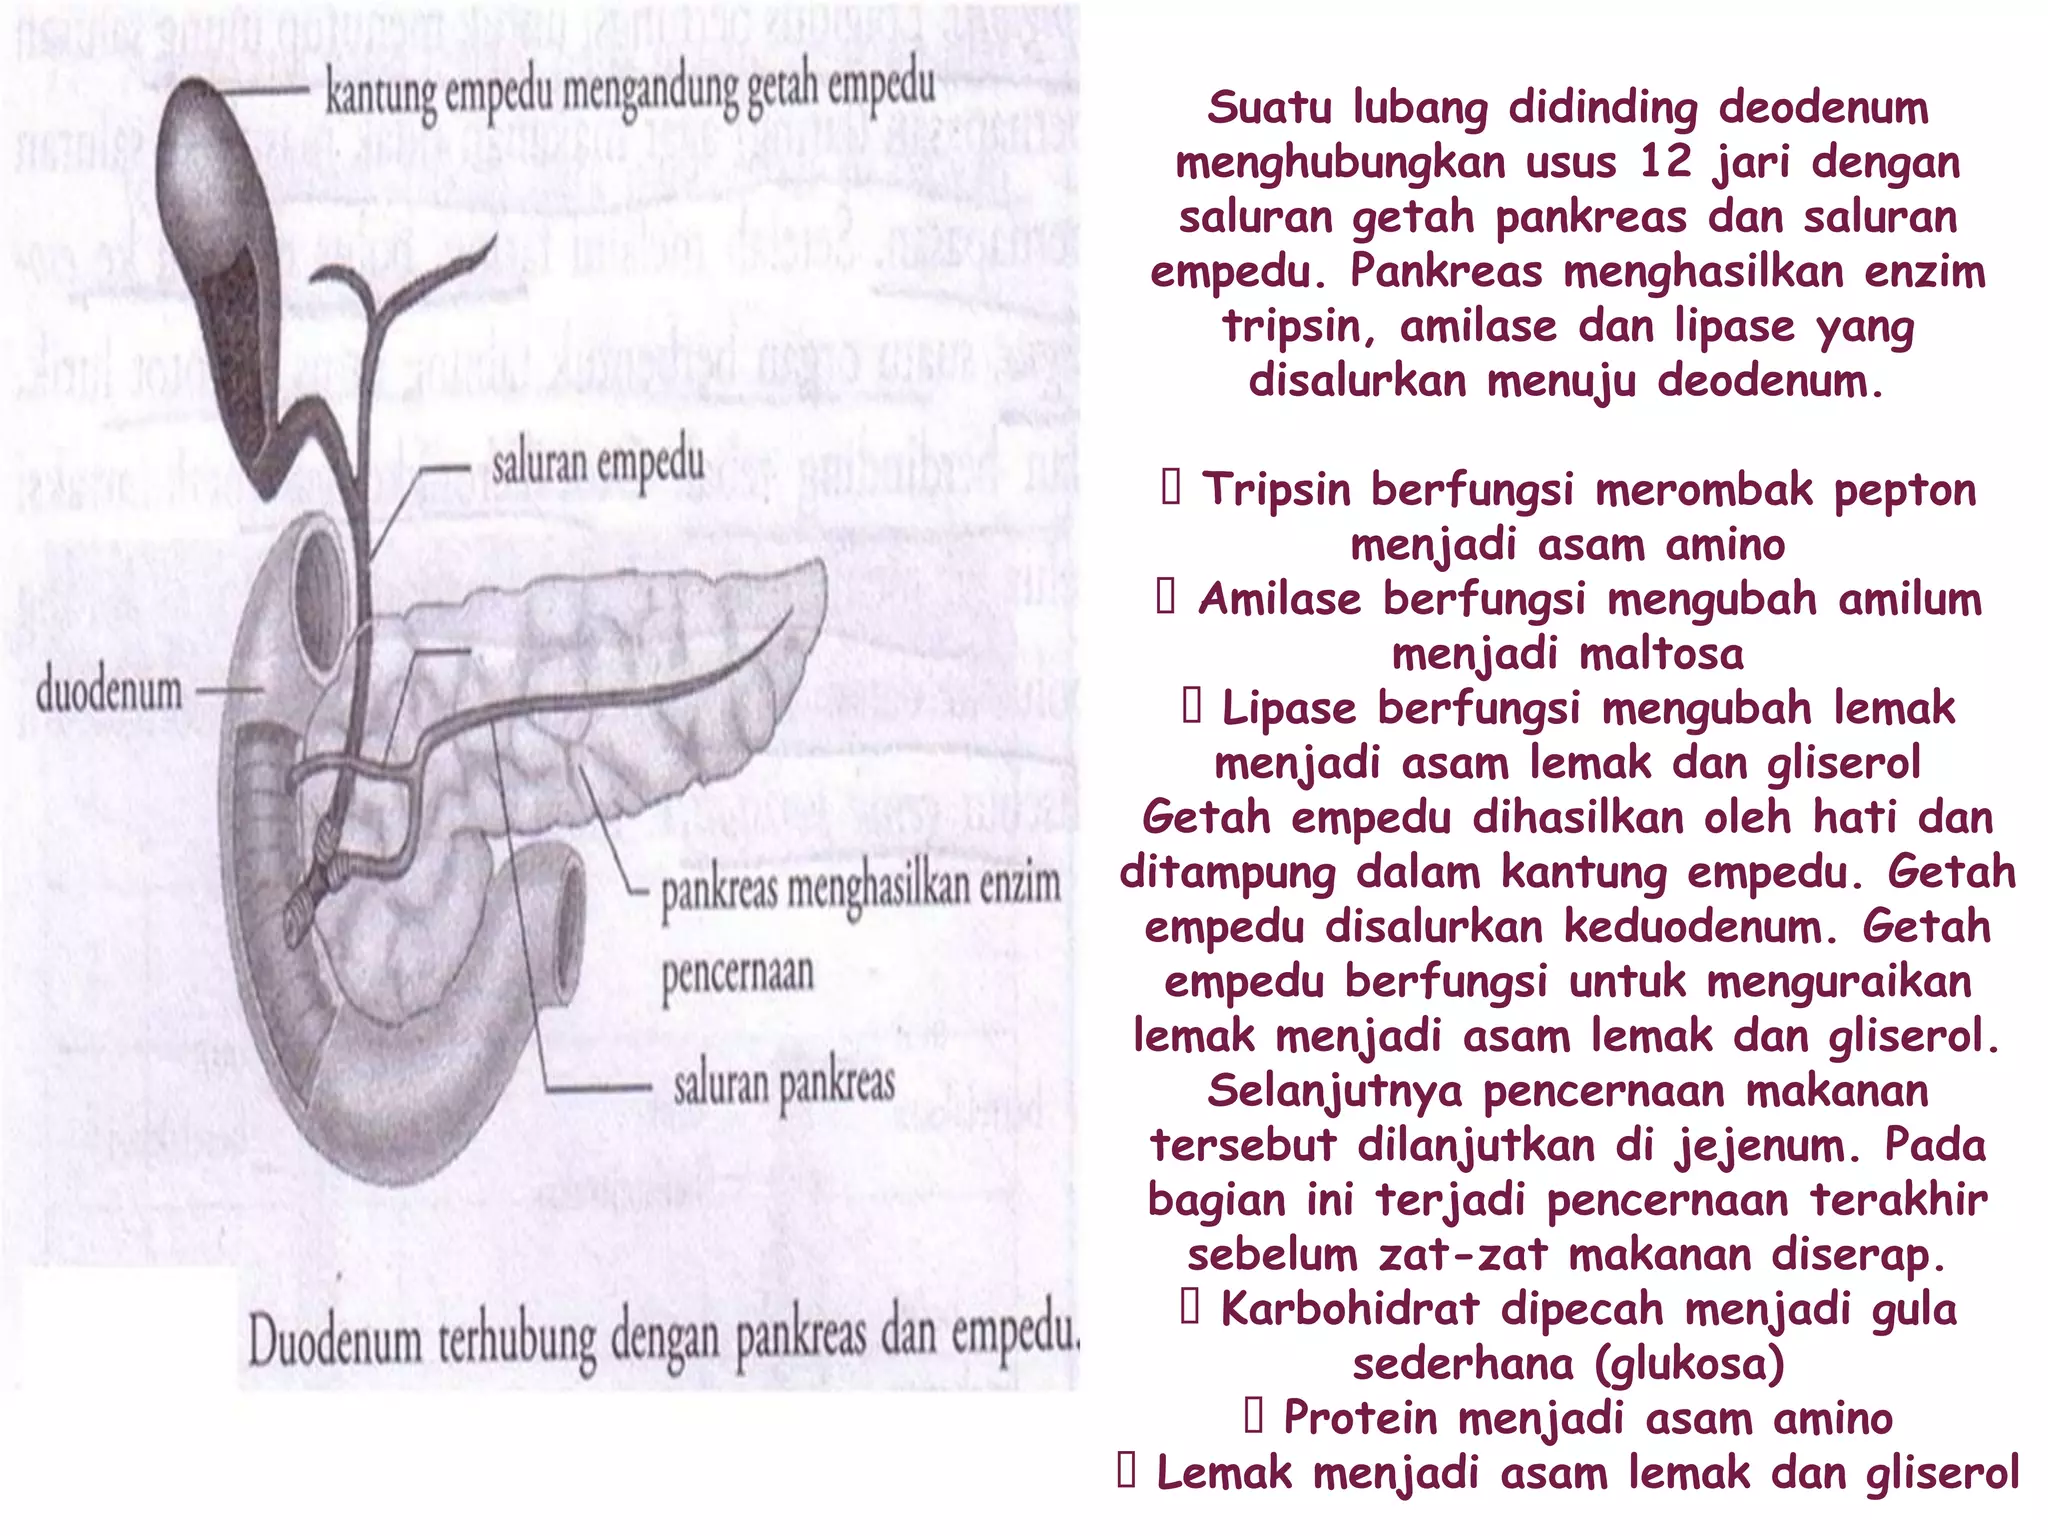 kantung empedu mengandung getah empedu
saluran empedu
duodenum
pankreas menghasilkan enzim
pencernaan
saluran pankreas
Duodenum terhubung dengan pankreas dan empedu.
Suatu lubang didinding deodenum
menghubungkan usus 12 jari dengan
saluran getah pankreas dan saluran
empedu. Pankreas menghasilkan enzim
tripsin, amilase dan lipase yang
disalurkan menuju deodenum.
Tripsin berfungsi merombak pepton
menjadi asam amino
Amilase berfungsi mengubah amilum
menjadi maltosa
Lipase berfungsi mengubah lemak
menjadi asam lemak dan gliserol
Getah empedu dihasilkan oleh hati dan
ditampung dalam kantung empedu. Getah
empedu disalurkan keduodenum. Getah
empedu berfungsi untuk menguraikan
lemak menjadi asam lemak dan gliserol.
Selanjutnya pencernaan makanan
tersebut dilanjutkan di jejenum. Pada
bagian ini terjadi pencernaan terakhir
sebelum zat-zat makanan diserap.
Karbohidrat dipecah menjadi gula
sederhana (glukosa)
Protein menjadi asam amino
Lemak menjadi asam lemak dan gliserol